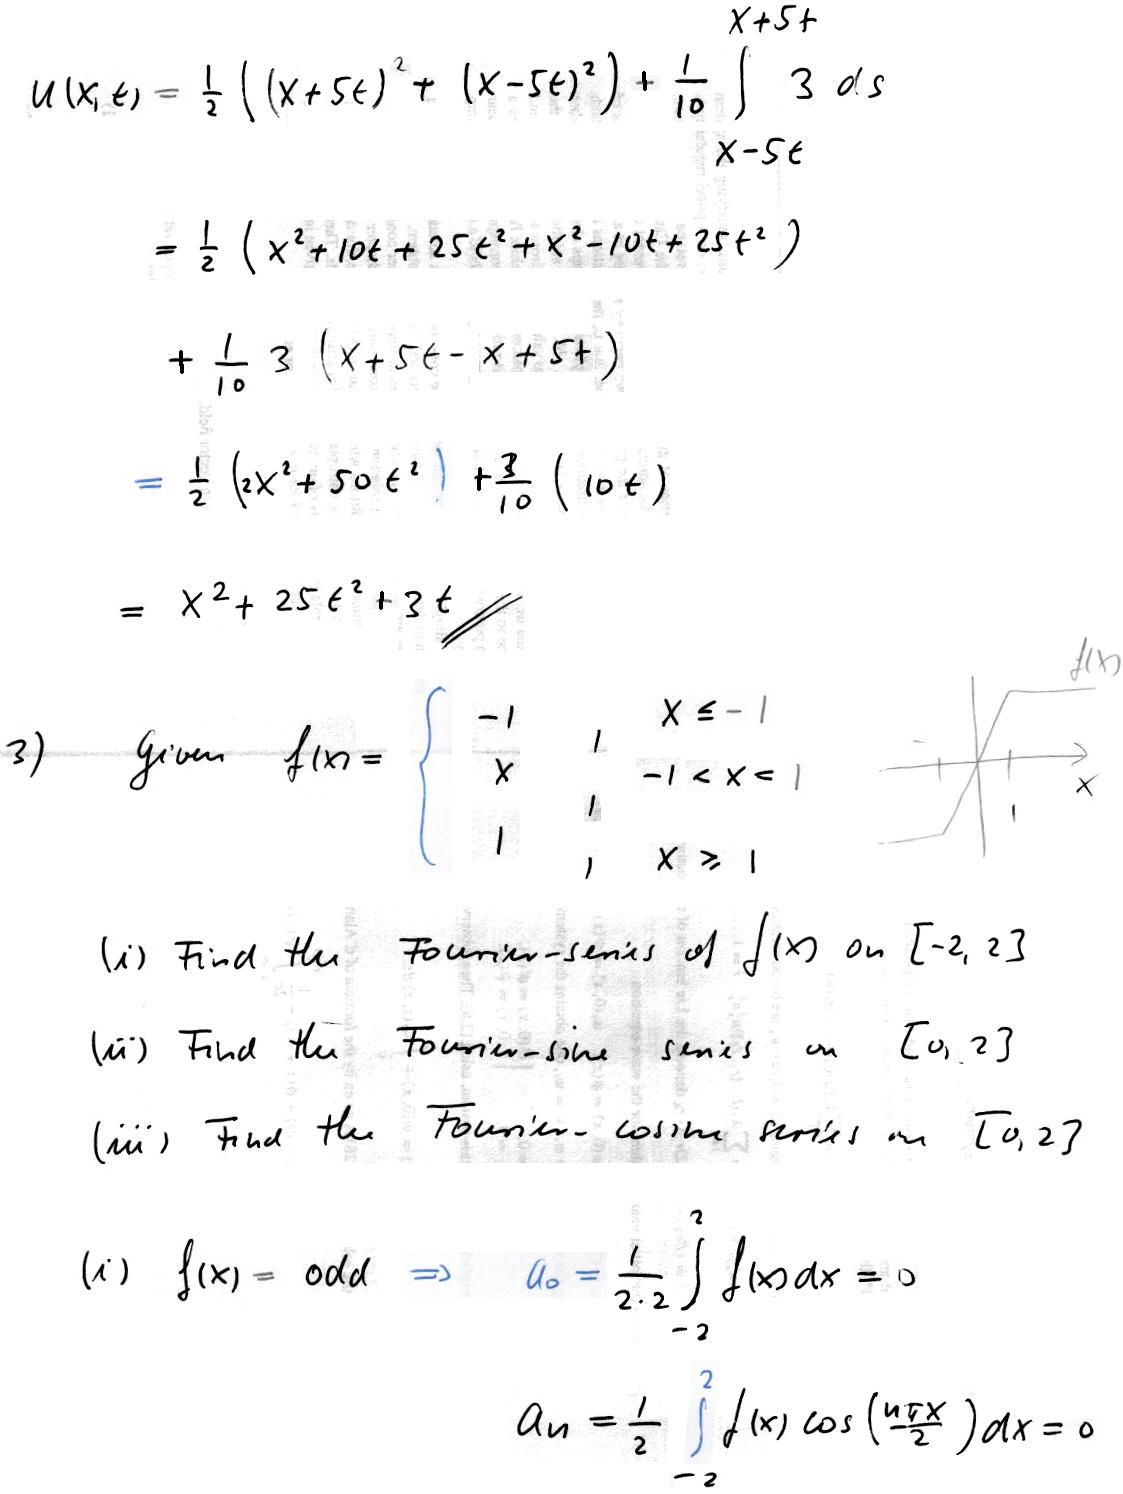 u(x,t) = 1/2 ((x+5t)² + (x-5t)²) + 1/10 ∫_{x-5t}^{x+5t} 3 ds
= 1/2 (x²+10t+25t²+x²-10t+25t²)
+ 1/10 3 (x+5t-x+5t)
= 1/2 (2x²+50t²) + 3/10 (10t)
= x²+25t²+3t
3) Given f(x) = { -1 , x ≤ -1
x , -1 < x < 1
1 , x ≥ 1
f(x)
x
1
(i) Find the Fourier-series of f(x) on [-2,2]
(ii) Find the Fourier-sine series on [0,2]
(iii) Find the Fourier-cosine series on [0,2]
(i) f(x) = odd ⇒ a₀ = 1/(2·2) ∫_{-2}^{2} f(x)dx = 0
aₙ = 1/2 ∫_{-2}^{2} f(x) cos(nπx/2)dx = 0